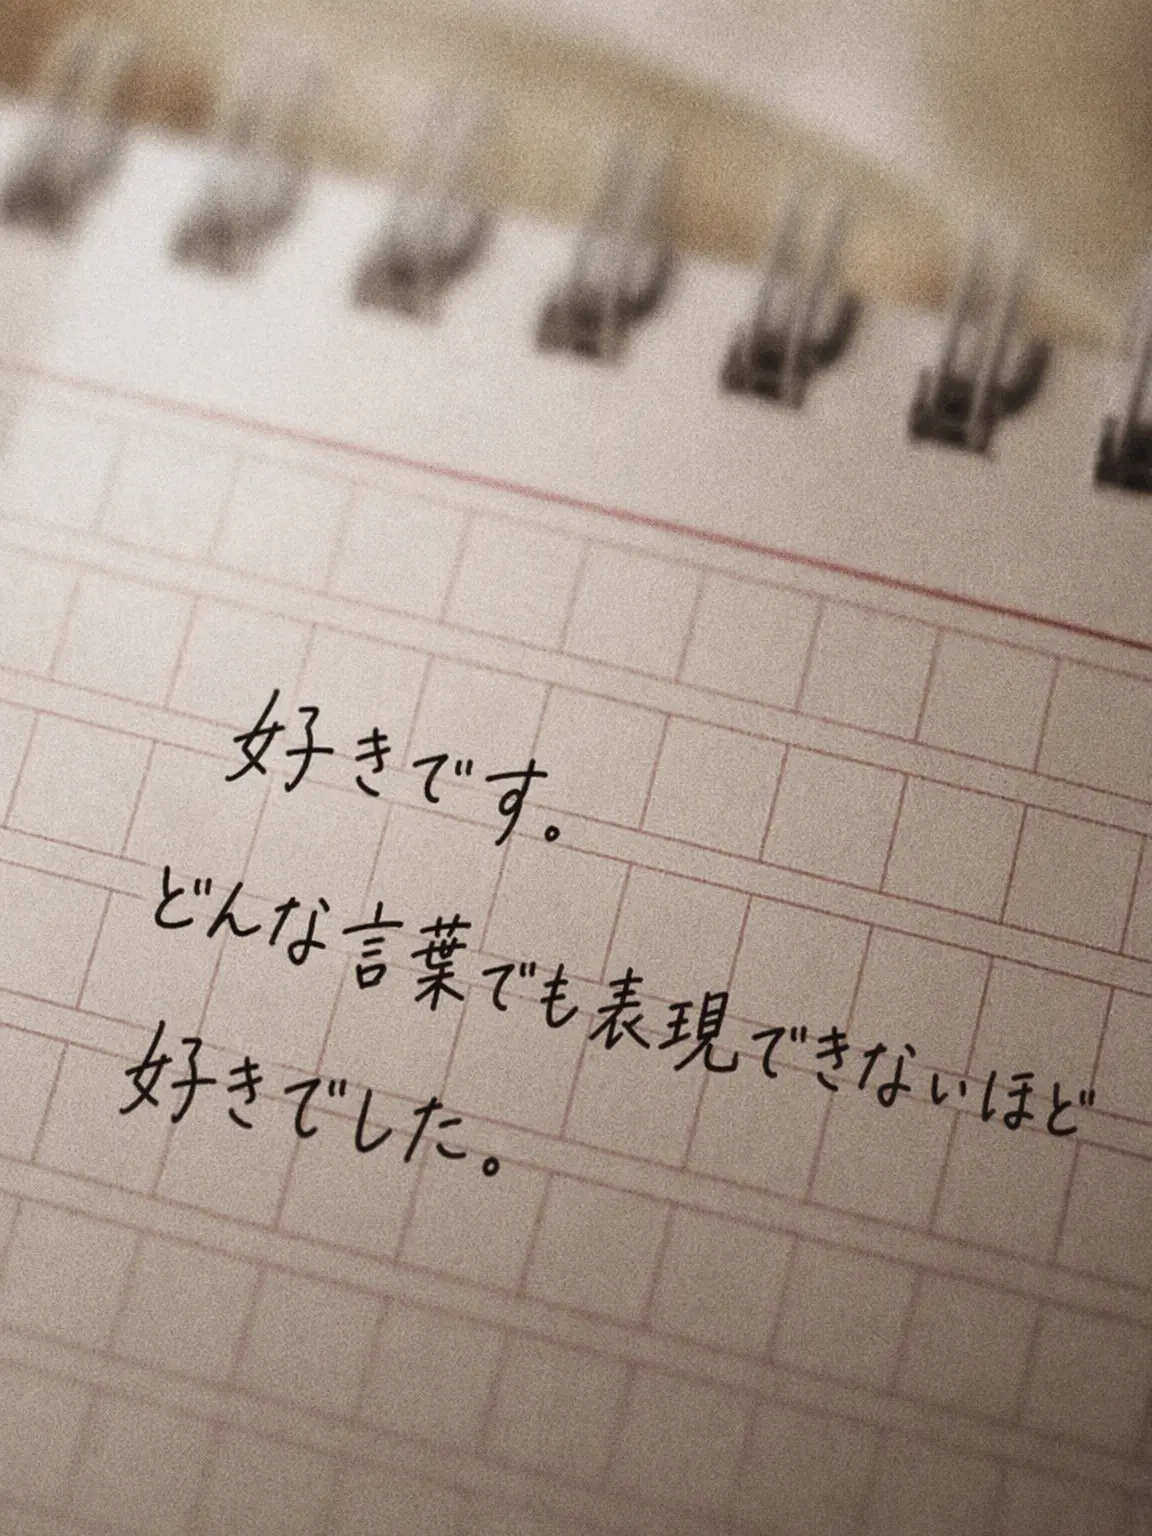 好きです。
どんな言葉でも表現できないほど
好きでした。